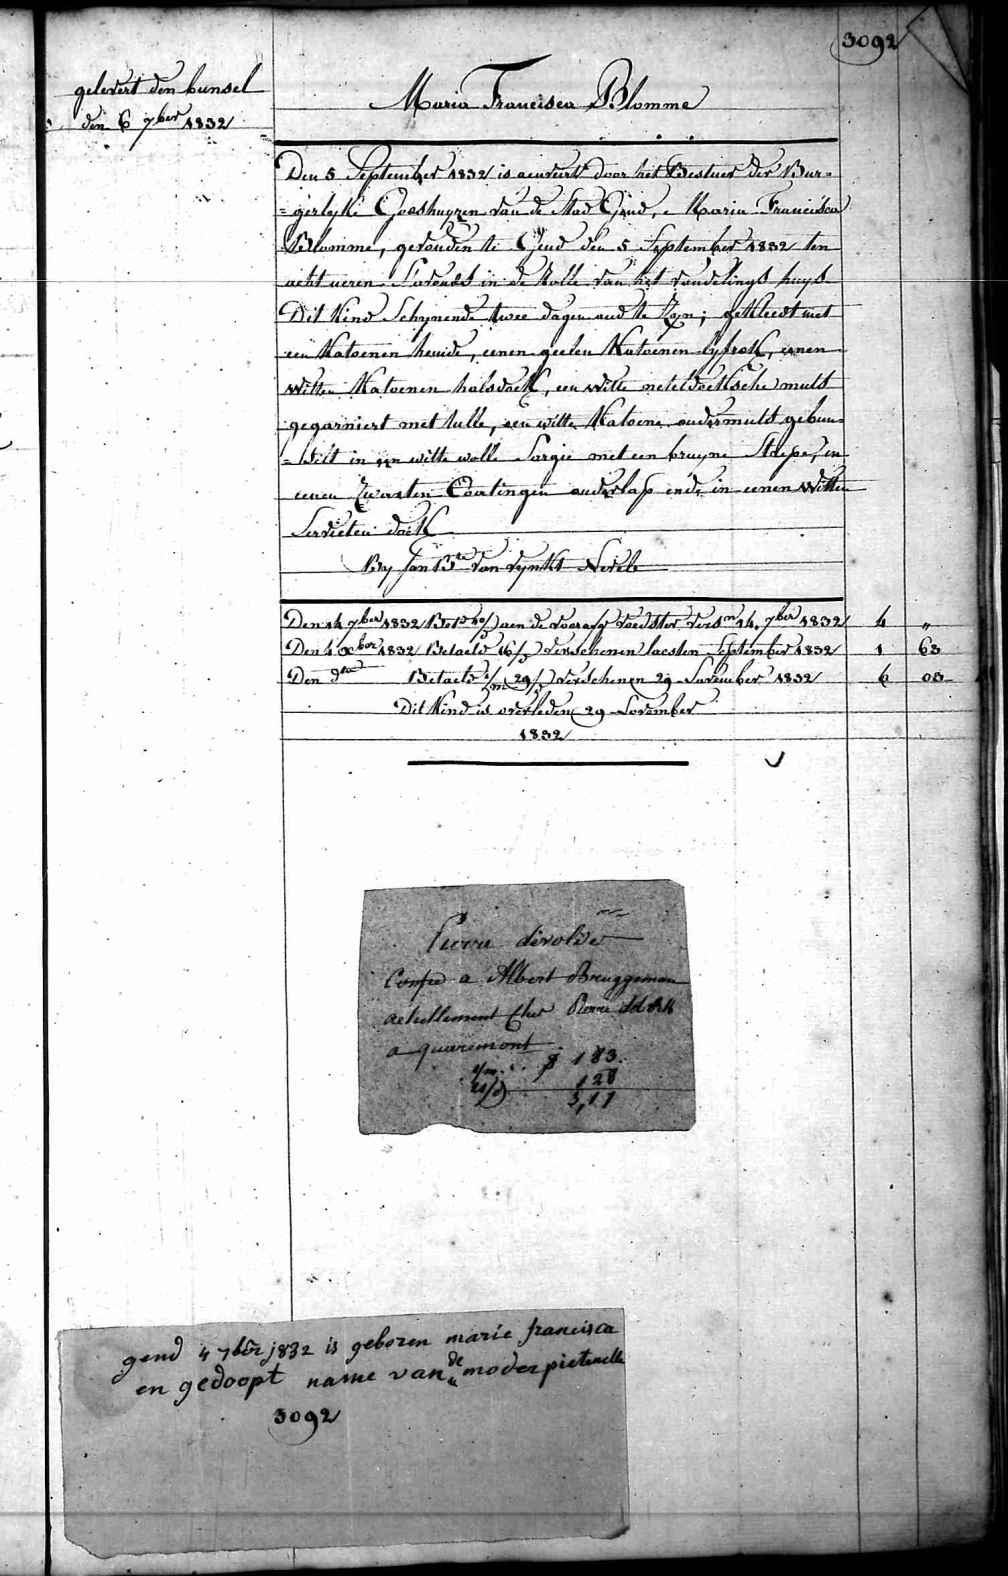 3092
gelevert den bunsel
den 6 7ber 1832
Maria Francisca Blomme
Den 5 September 1832 is aenveirt door het Bestuer der Bur=
=gerlyke Godshuyzen van de Stad Gend, Maria Francisca
Blomme, gevonden te Gend den 5 September 1832 ten
acht ueren S'avonds in de Rolle van het vondelings huys
Dit Kind Schynende twee dagen oud te Zyn; gekleedt met
een Katoenen hemde, eenen geelen Katoenen lyfrok, eenen
witten Katoenen halsdoek, een witte neteldoeksche muts
gegarniert met tulle, een witte Katoene ondermuts gebun=
=delt in een witte wolle Sargie met een bruyne Strepe, en
eenen Zwarten Coatingen onderlap ende in eenen witten
Servieten doek
By Jan Bte van Nevele
Den 14 7ber 1832 Bet aen de voorzg voedster versn 14 7ber 1832 4 "
Den 4 xber 1832 Betaeld 16/ verschenen lacsten September 1832 1 63
Den dto Betaeld 29/ verschenen 29 November 1832 6 03
Dit Kind is overleden 29 November
1832
Pierre devolder
Confié a Albert Bruggeman
actuellement Chez Pierre
a quaremont
183
128
3,11
gend 4 7ber 1832 is geboren marie francisca
en gedoopt name van de moder pietenelle
3092